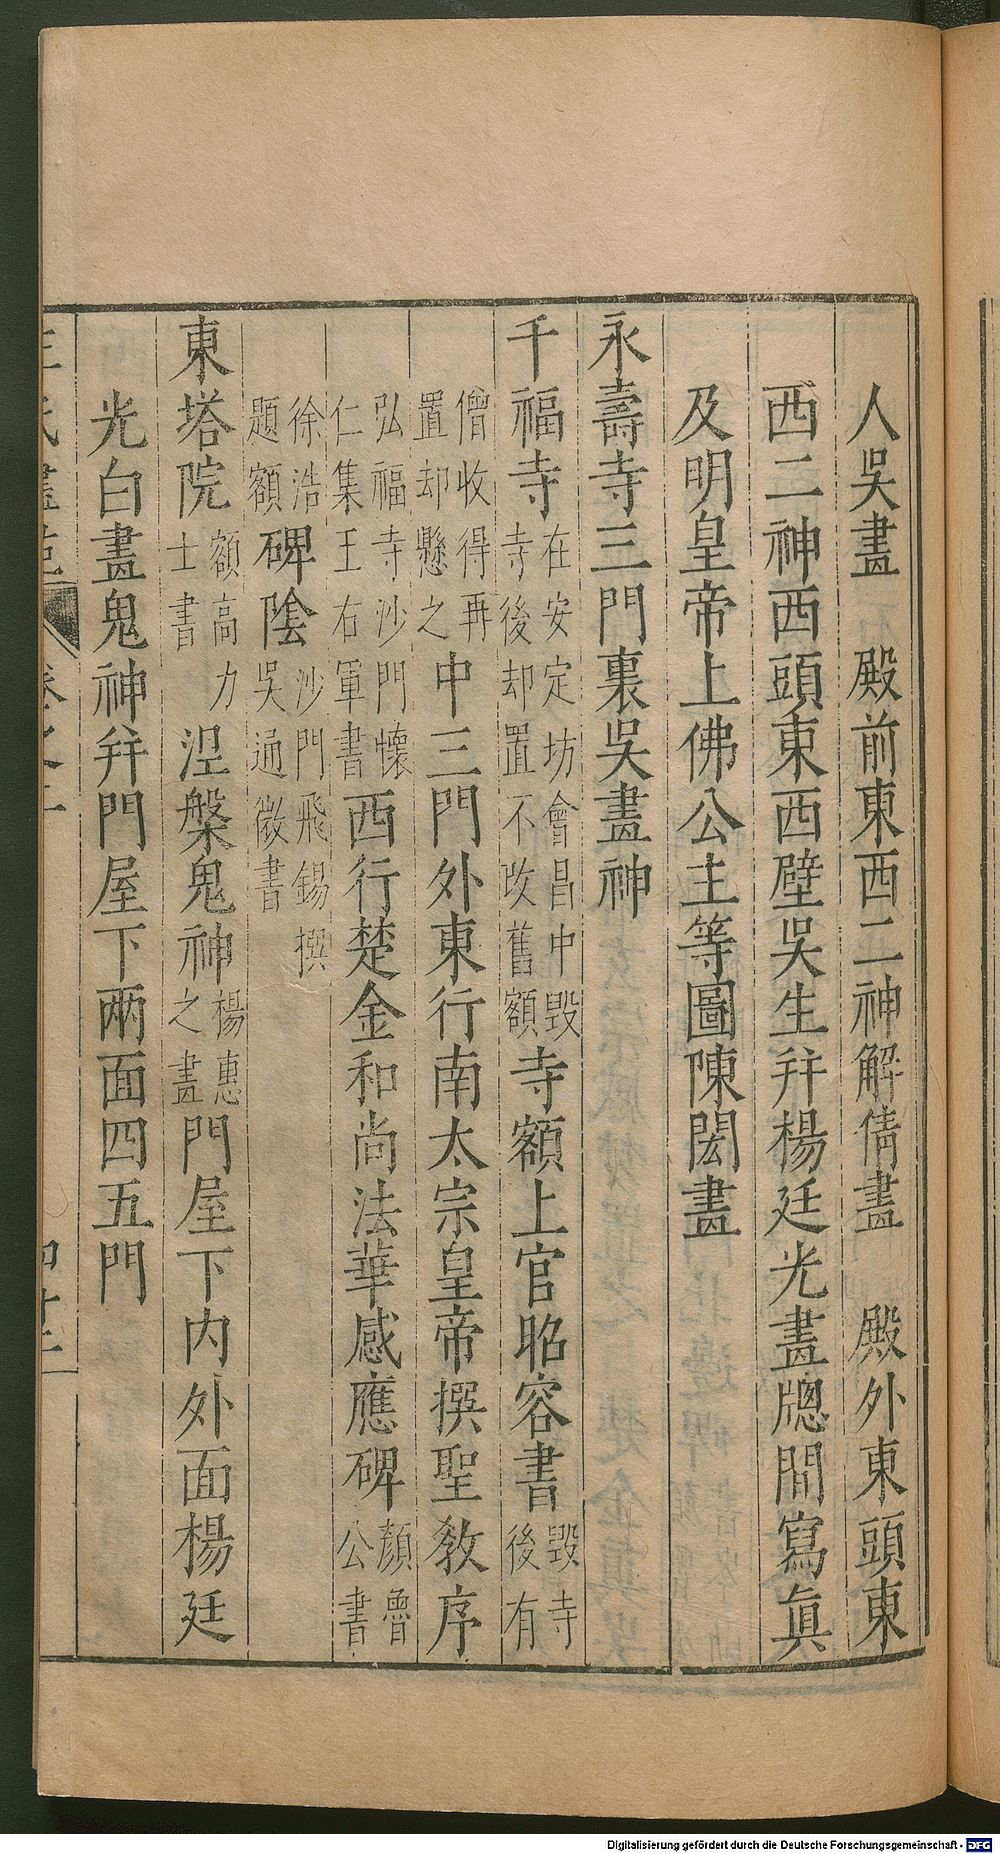 人吳畫　殿前東西二神解倩畫　殿外東頭東
西二神西頭東西壁吳生幷楊廷光畫牕間寫眞
及明皇帝上佛公主等圖陳閎畫
永壽寺三門裏吳畫神
千福寺在安定坊會昌中毀寺後却置不改舊額寺額上官昭容書毀寺後有
僧收得再置却懸之中三門外東行南太宗皇帝撰聖教序
弘福寺沙門懷仁集王右軍書西行楚金和尚法華感應碑顏魯公書
徐浩題額碑陰沙門飛錫撰吳通微書
東塔院額高力士書涅槃鬼神楊惠之畫門屋下內外面楊廷
光白畫鬼神幷門屋下兩面四五門
Digitalisierung gefördert durch die Deutsche Forschungsgemeinschaft - DFG